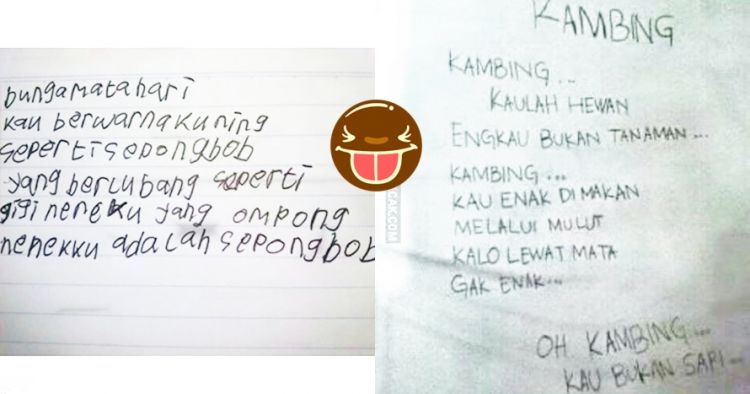 bungamatahari
kau berwarnakuning
sepertisepongbob
yang berlubang seperti
gigi neneku yang ompong
nenekku adalah sepongbob
KAMBING
KAMBING...
KAULAH HEWAN
ENGKAU BUKAN TANAMAN...
KAMBING...
KAU ENAK DIMAKAN
MELALUI MULUT
KALO LEWAT MATA
GAK ENAK...
OH KAMBING...
KAU BUKAN SAPI...